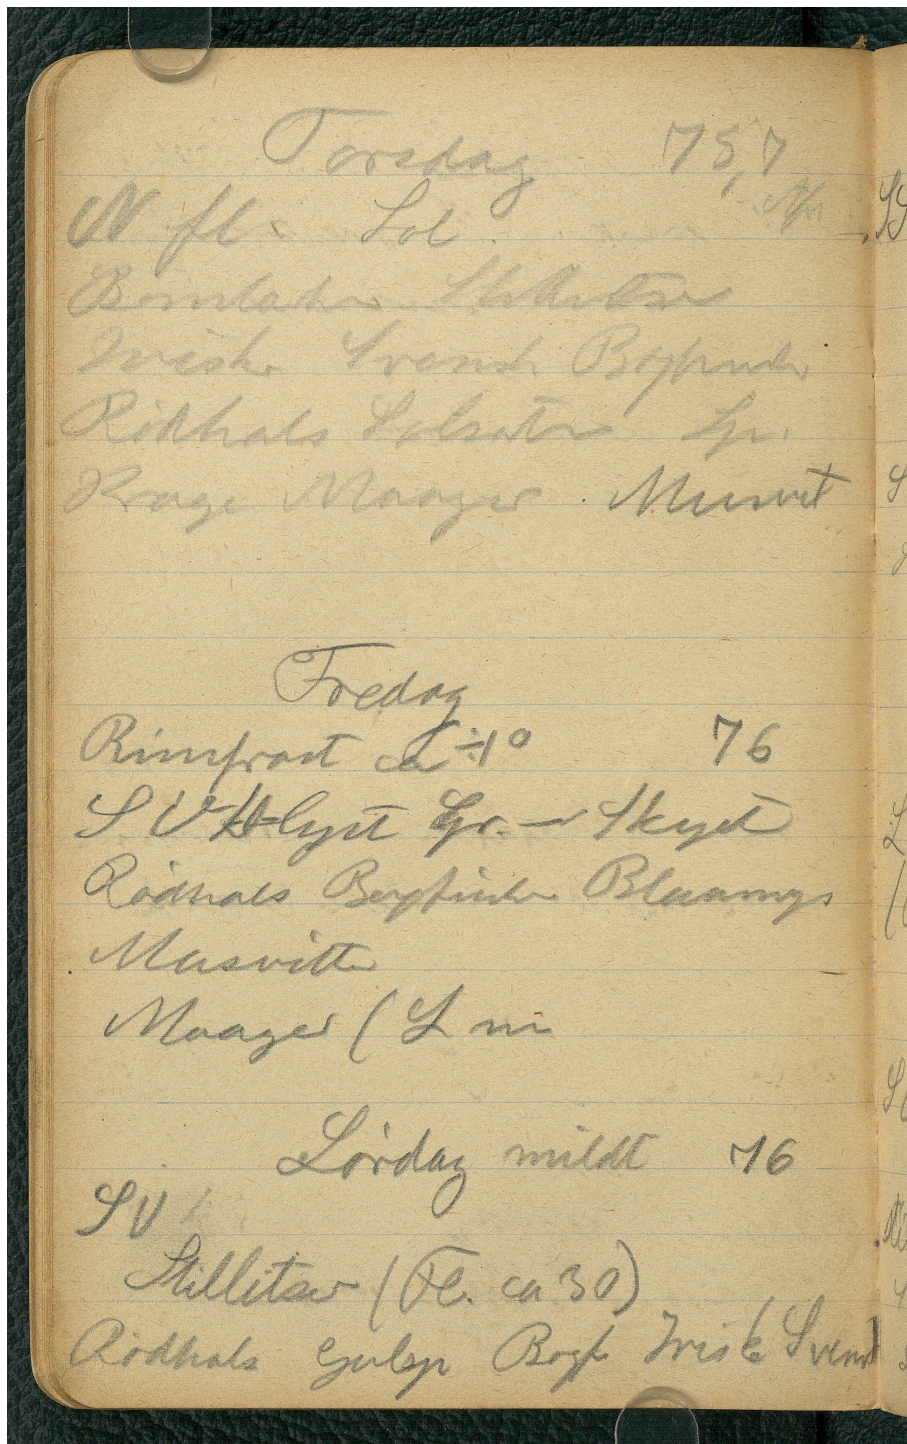 Torsdag 75,7
N fl. Sol.
Bomlærker Stillitser
Irisk Svensk Bogfinker
Rødhals Solsorter Gr.
Krage Maager Musvit
Fredag
Rimfrost ca ÷1° 76
S V lyst Gr. — Skyet
Rødhals Bogfinker Blaamejs
Musvitter
Maager (
Lørdag mildt 76
SV
Stillitser (Fl. ca 30)
Rødhals Gulsp Bogf Irisk (Svensk)